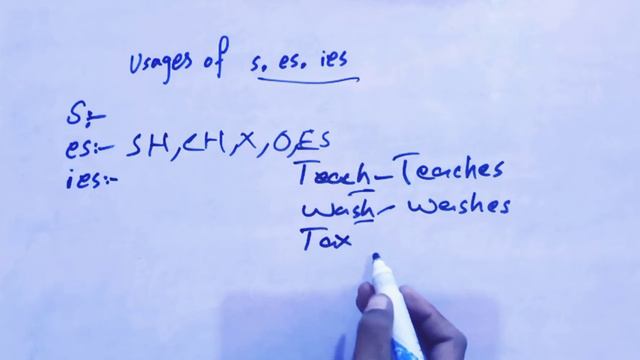 Usages of s. es. ies
S:-
es:- SH, CH, X, O, ES
ies:-
Teach - Teaches
Wash - Washes
Tax